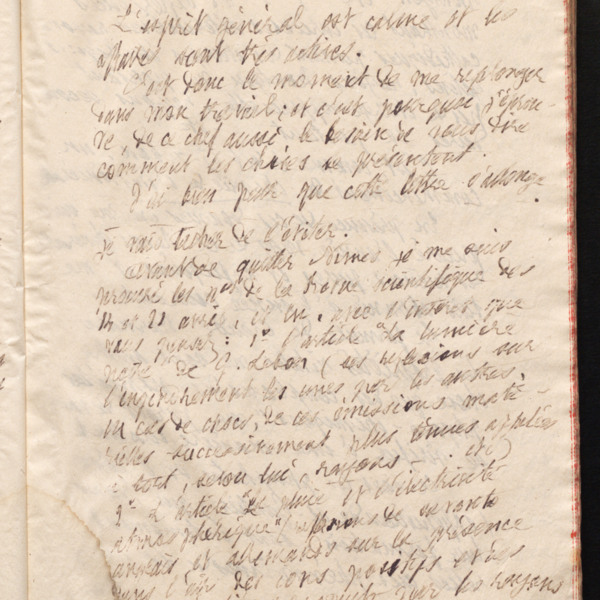 L'esprit général est calme et les
affaires sont très actives.
C'est donc le moment de me replonger
dans mon travail; et c'est pourquoi j'éprou-
ve, de ce chef aussi le besoin de vous dire
comment les choses se présentent.
J'ai bien peur que cette lettre s'allonge
.
Je vais tâcher de l'éviter.
Avant de quitter Nîmes je me suis
procuré les nos de la Revue scientifique des
14 et 21 avril, et lu, avec l'intérêt que
vous pensez: 1º l'article "La lumière
noire" de G. Lebon (ses réflexions sur
l'engendrement les unes par les autres,
en cas de chocs, de ces émissions maté-
rielles successivement plus ténues appelées
à tort, selon lui, rayons . etc)
2º L'article "La pluie et l'électricité
atmosphérique" (réflexions de savants
anglais et allemands sur la présence
dans l'air des ions positifs et des
par les rayons